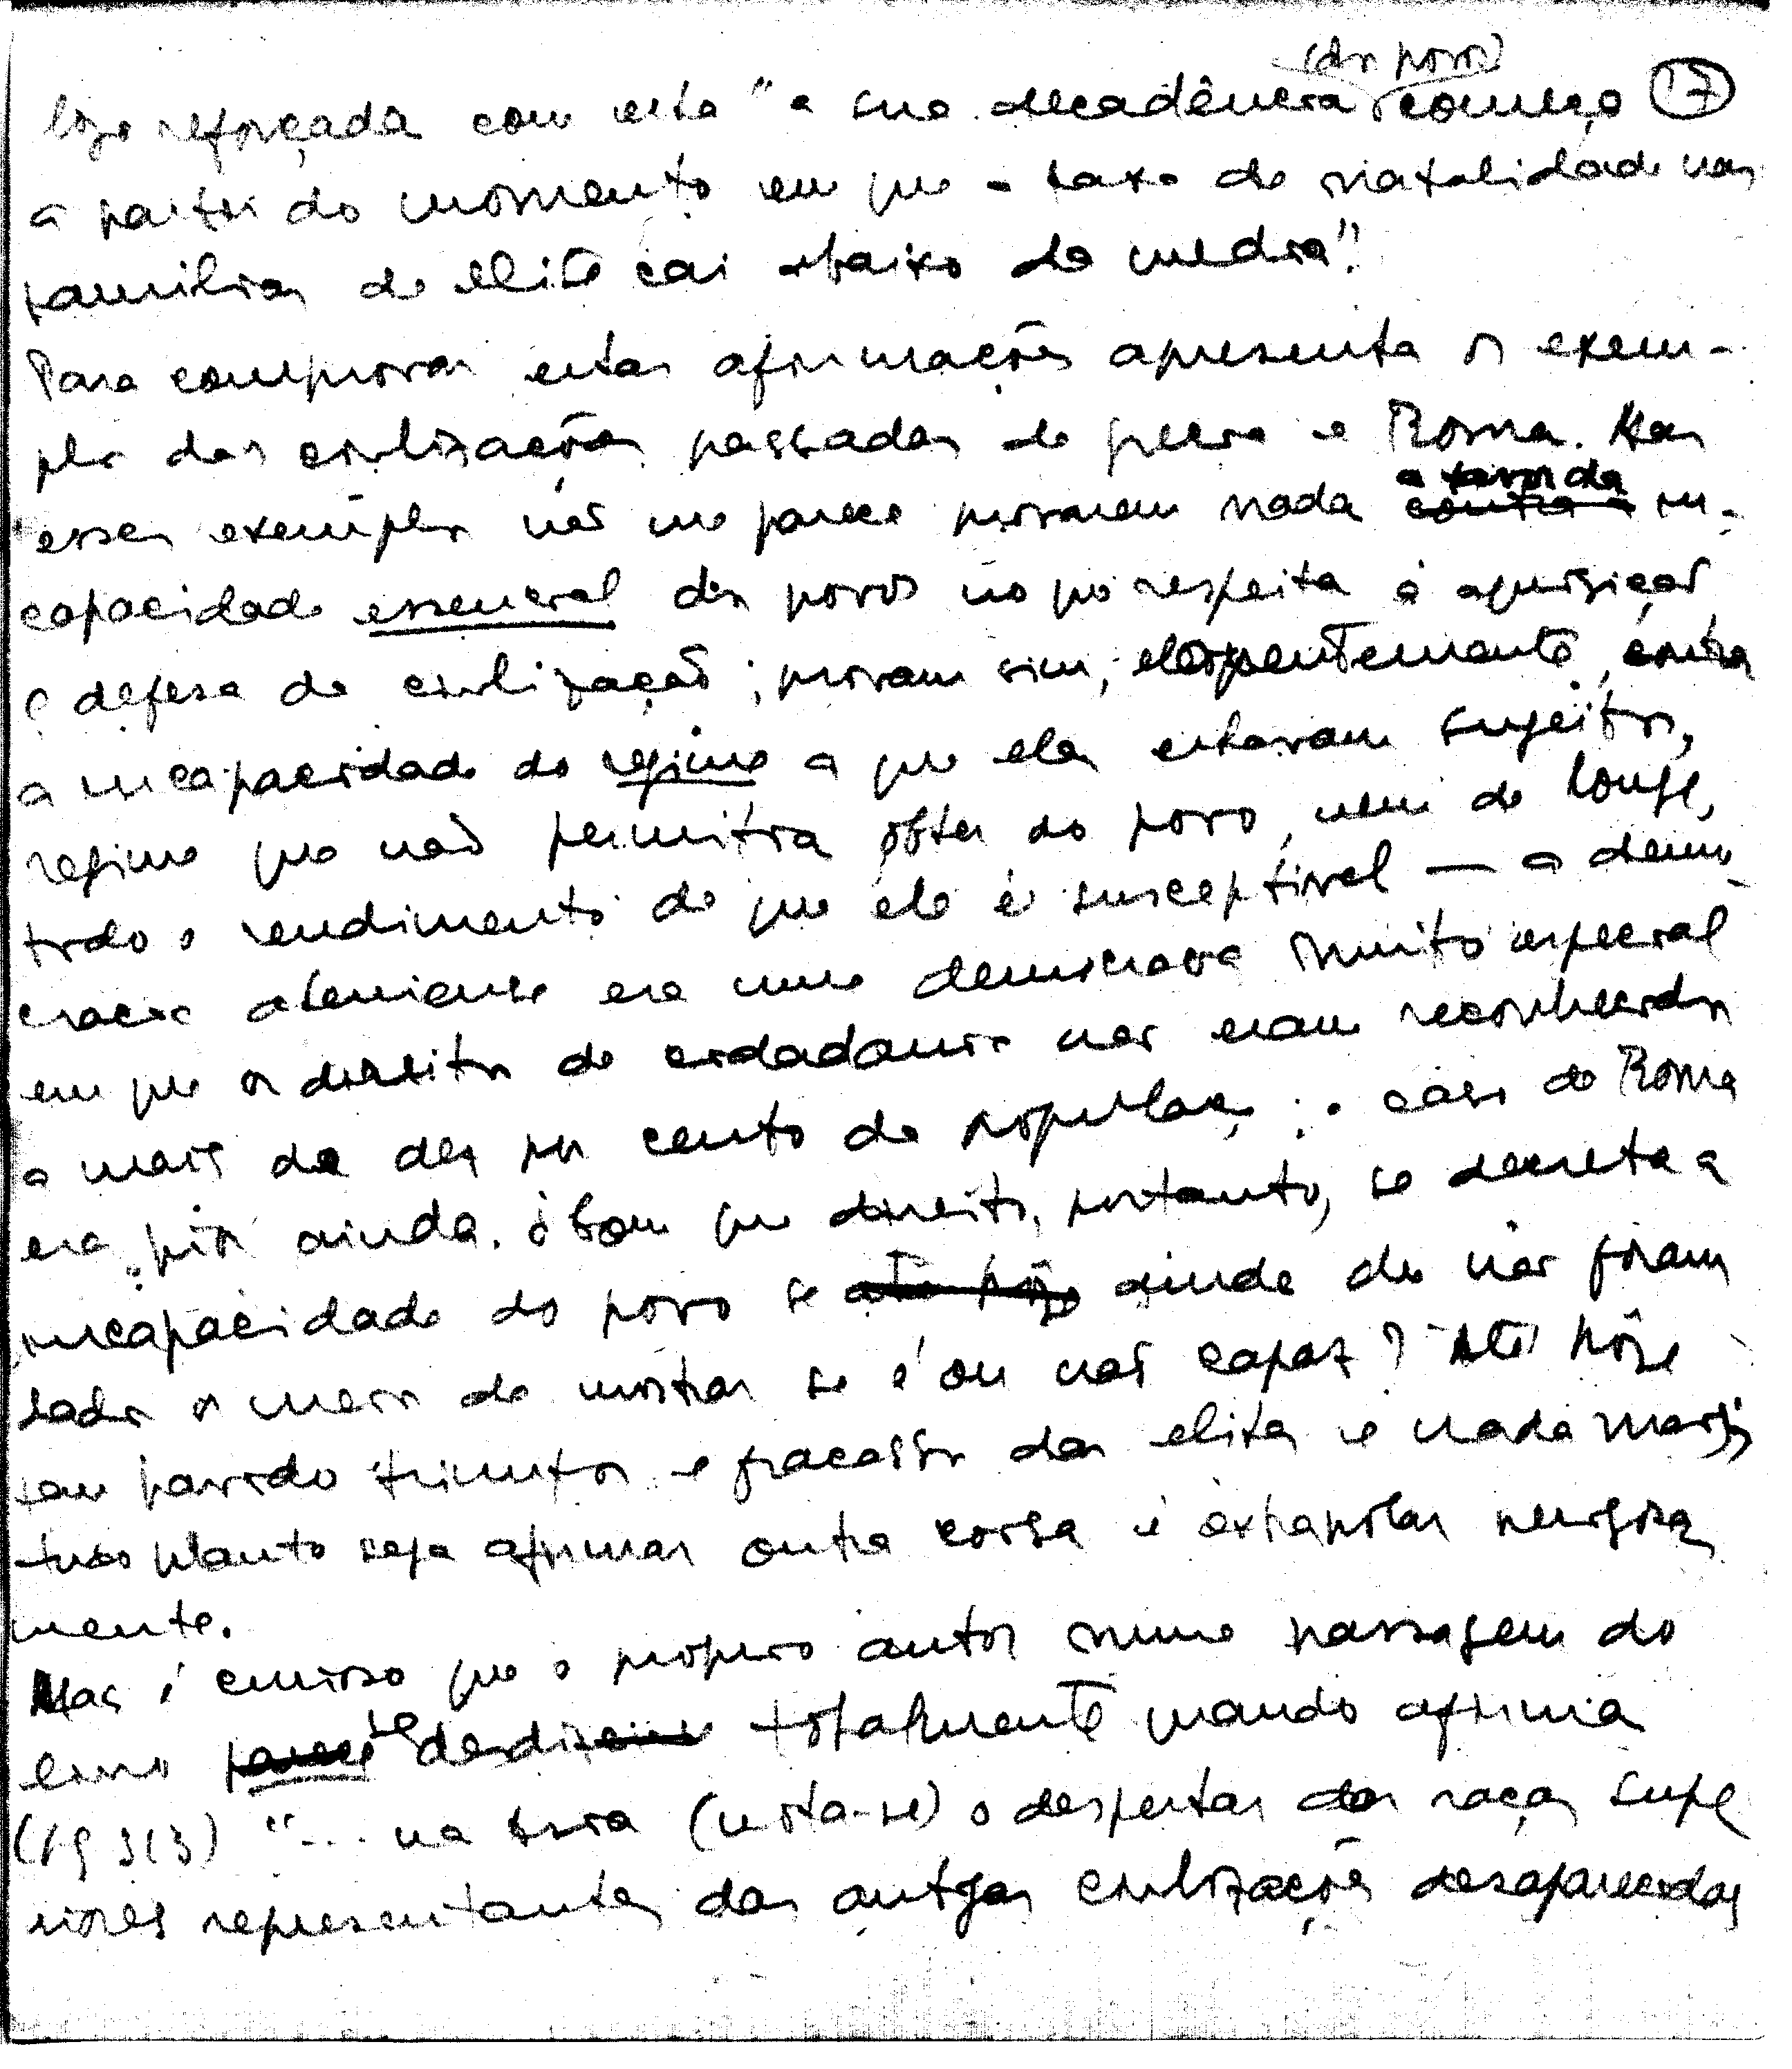 (dos povos)
logo reforçada com esta "a sua decadência começa 17
a partir do momento em que a taxa de natalidade nas
familias de elite cai abaixo da media".
Para comprovar estas afirmações apresenta os exem-
plos das civilizações passadas de Grecia e Roma. Mas
a favor da
esses exemplos não me parece provarem nada contra a in-
capacidade essencial dos povos no que respeita à aquisição
e defesa da civilização; provam sim, eloquentemente, contra
a incapacidade do regime a que eles estavam sugeitos,
regime que não permitia obter do povo, nem de longe,
todo o rendimento de que ele é susceptivel — a demo-
cracia ateniense era uma democracia muito especial
em que os direitos de cidadania não eram reconhecidos
a mais de dez por cento da população; o caso de Roma
era pior ainda. Com que direito, portanto, se decreta a
incapacidade do povo se até hoje ainda lhe não foram
dados os meios de mostrar se é ou não capaz? Até hoje
tem havido triunfos e fracassos das elites e nada mais;
tudo quanto seja afirmar outra coisa é extrapolar perigosa
mente.
Mas é curioso que o proprio autor numa passagem do
livro parece se desdizer totalmente quando afirma
(pg 313) "... na Asia (nota-se) o despertar das raças supe
riores representantes das antigas civilizações desaparecidas